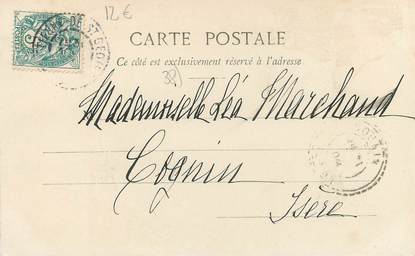 12 €
CARTE POSTALE
Ce côté est exclusivement réservé à l'adresse
38
Mademoiselle Léa Marchand
Cognin
Isère